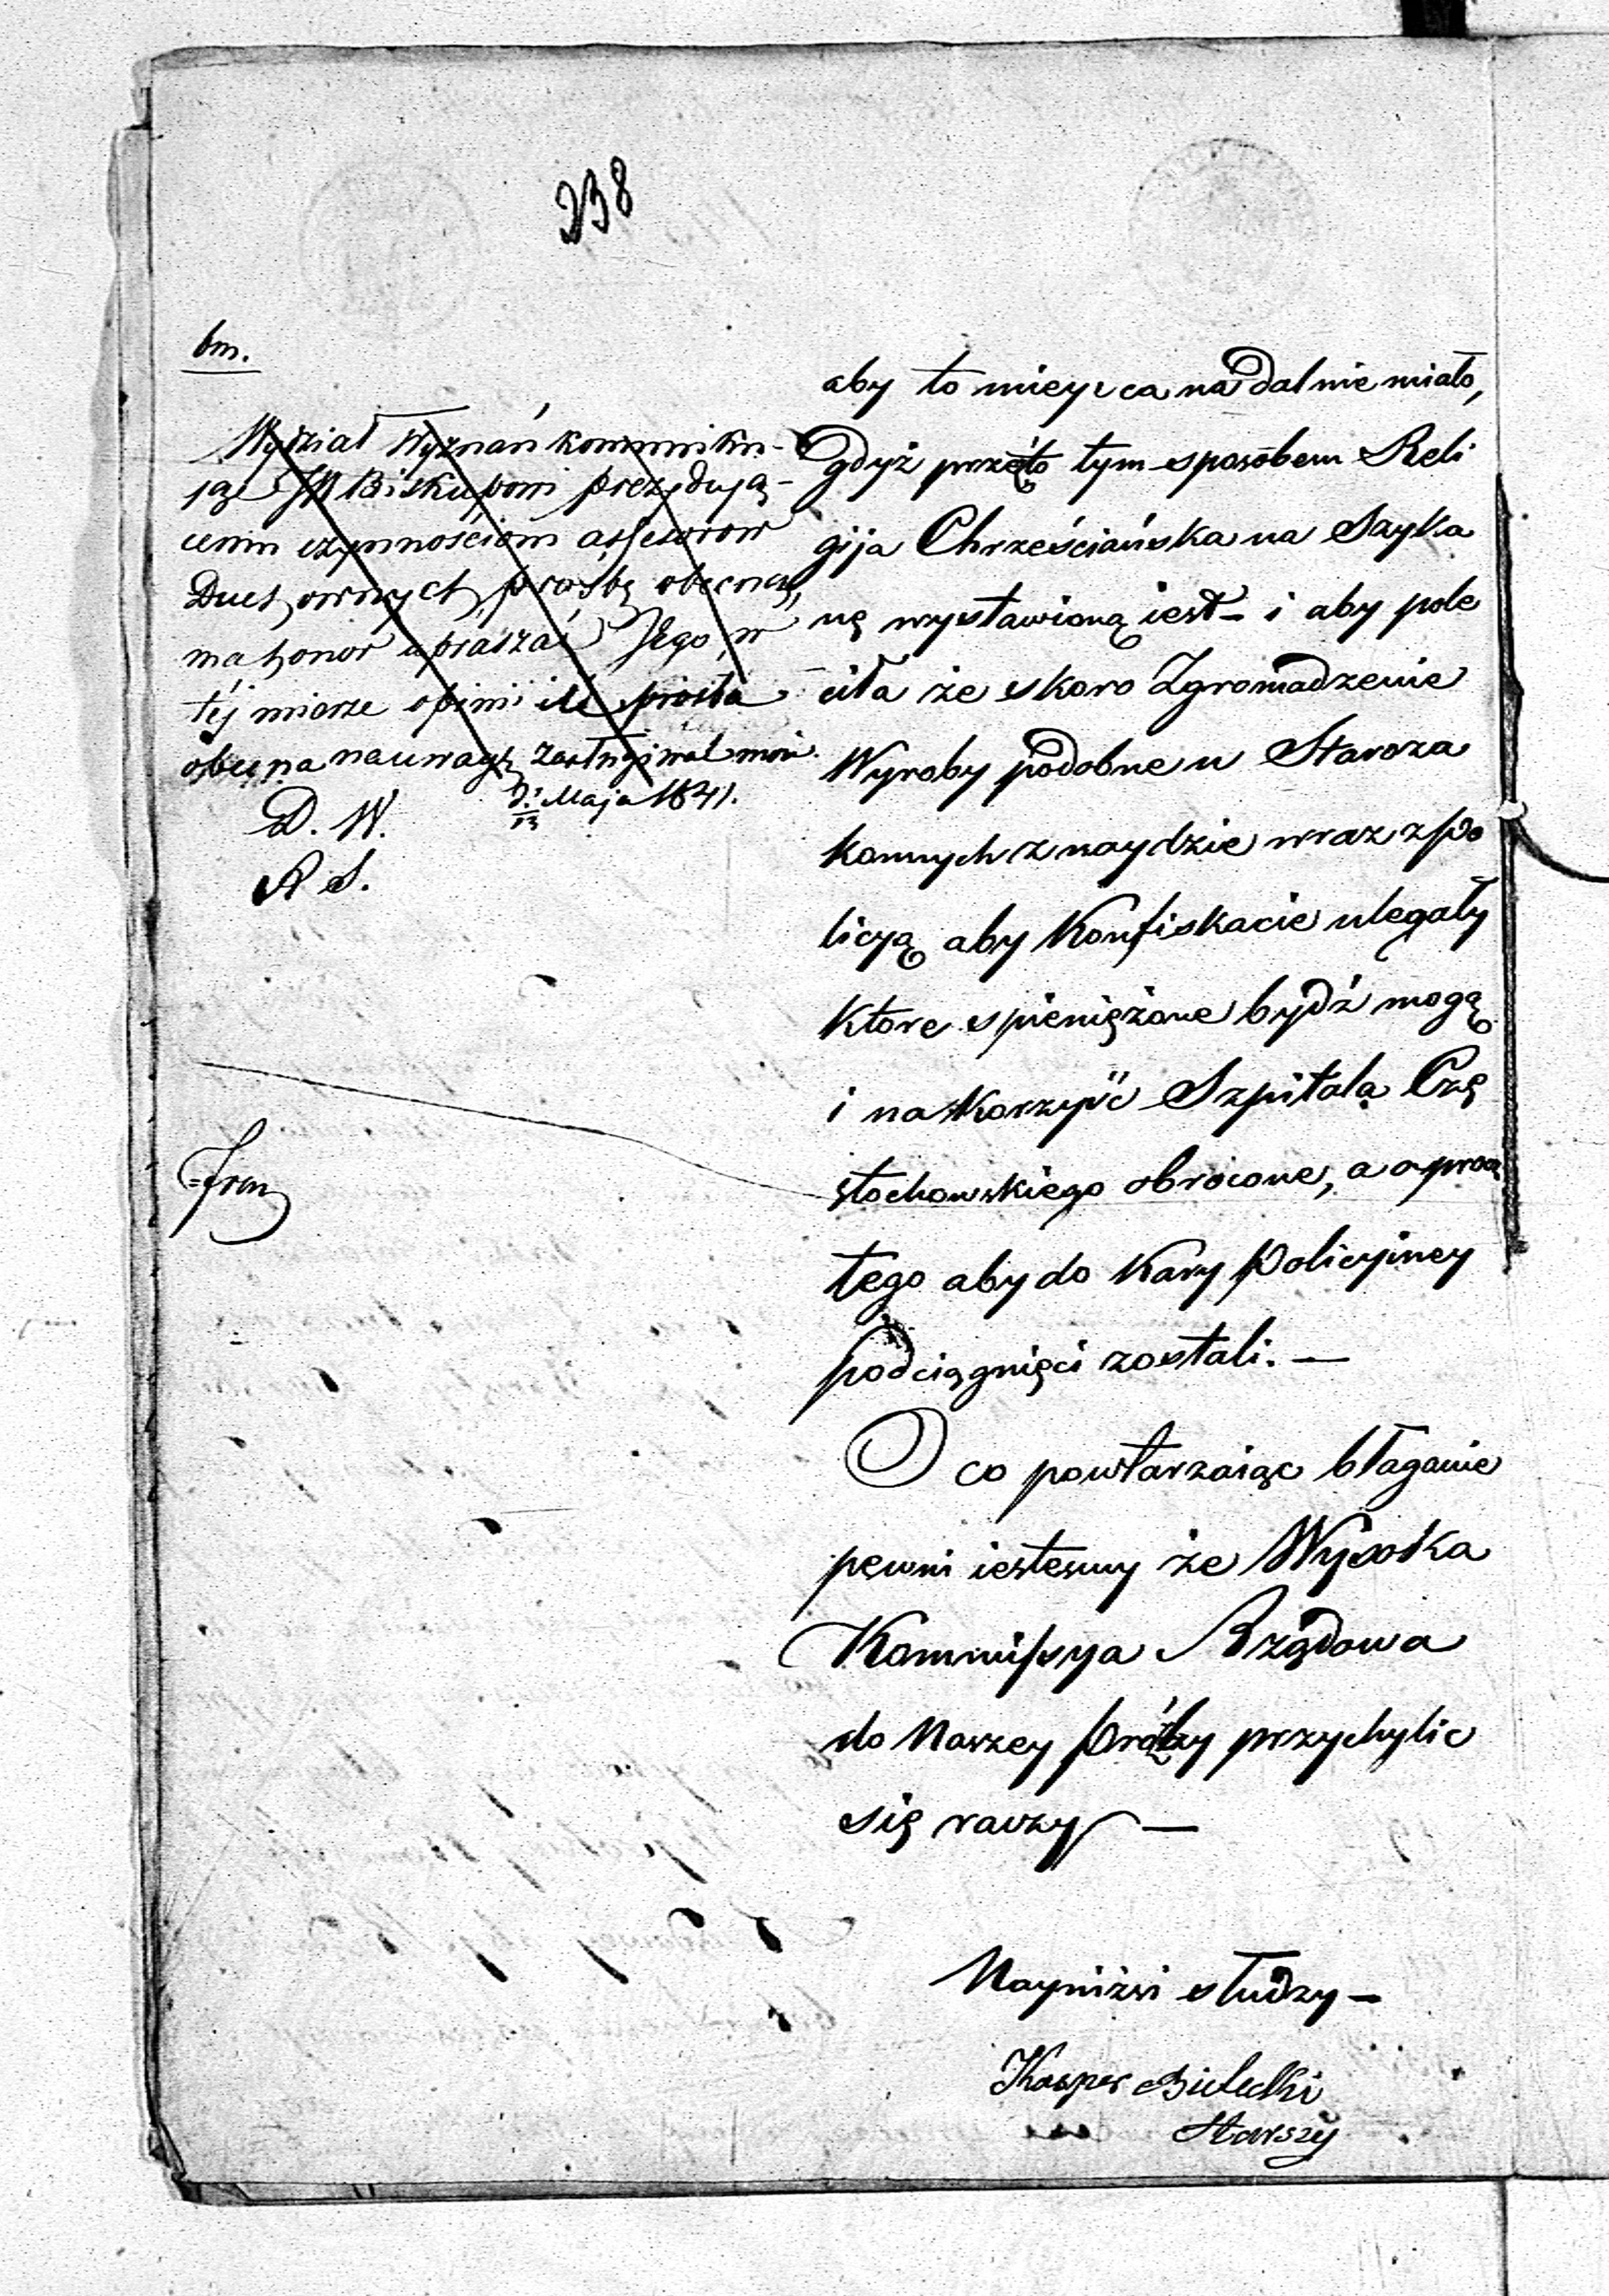 238
bm.
Wydział Wyznań kommuniku-
ją JW Biskupowi prezydują-
cemu czynnościom assessorow
Duchownych prośbę obecną,
ma honor upraszać Jego w
téj mierze opinii ile prośba
obecna na uwagę zasługiwać może.
d. 13 Maja 1841.
D. W.
A S.
aby to mieysca na dal nie miało,
gdyż przéto tym sposobem Reli
gija Chrześciańska na Szyka
nę wystawioną iest – i aby pole
ciła że skoro Zgromadzenie
Wyroby podobne u Staroza
konnych znaydzie wraz z Po
licyą aby Konfiskacie ulegały
które spieniężone bydź mogą
i na Korzyść Szpitala Czę
stochowskiego obrócone, a oprócz
tego aby do Kary Policyiney
podciągnięci zostali. —
O co powtarzaiąc błaganie
pewni iestesmy że Wysoka
Kommissya Rządowa
do Naszey Proźby przychylic
się raczy —
Nayniżsi słudzy —
Kasper Bielecki
Starszy